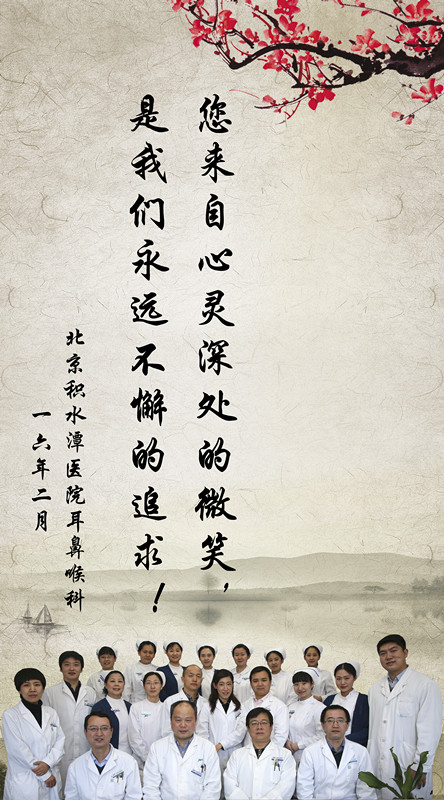 您来自心灵深处的微笑，
是我们永远不懈的追求！
北京积水潭医院耳鼻喉科
一六年二月